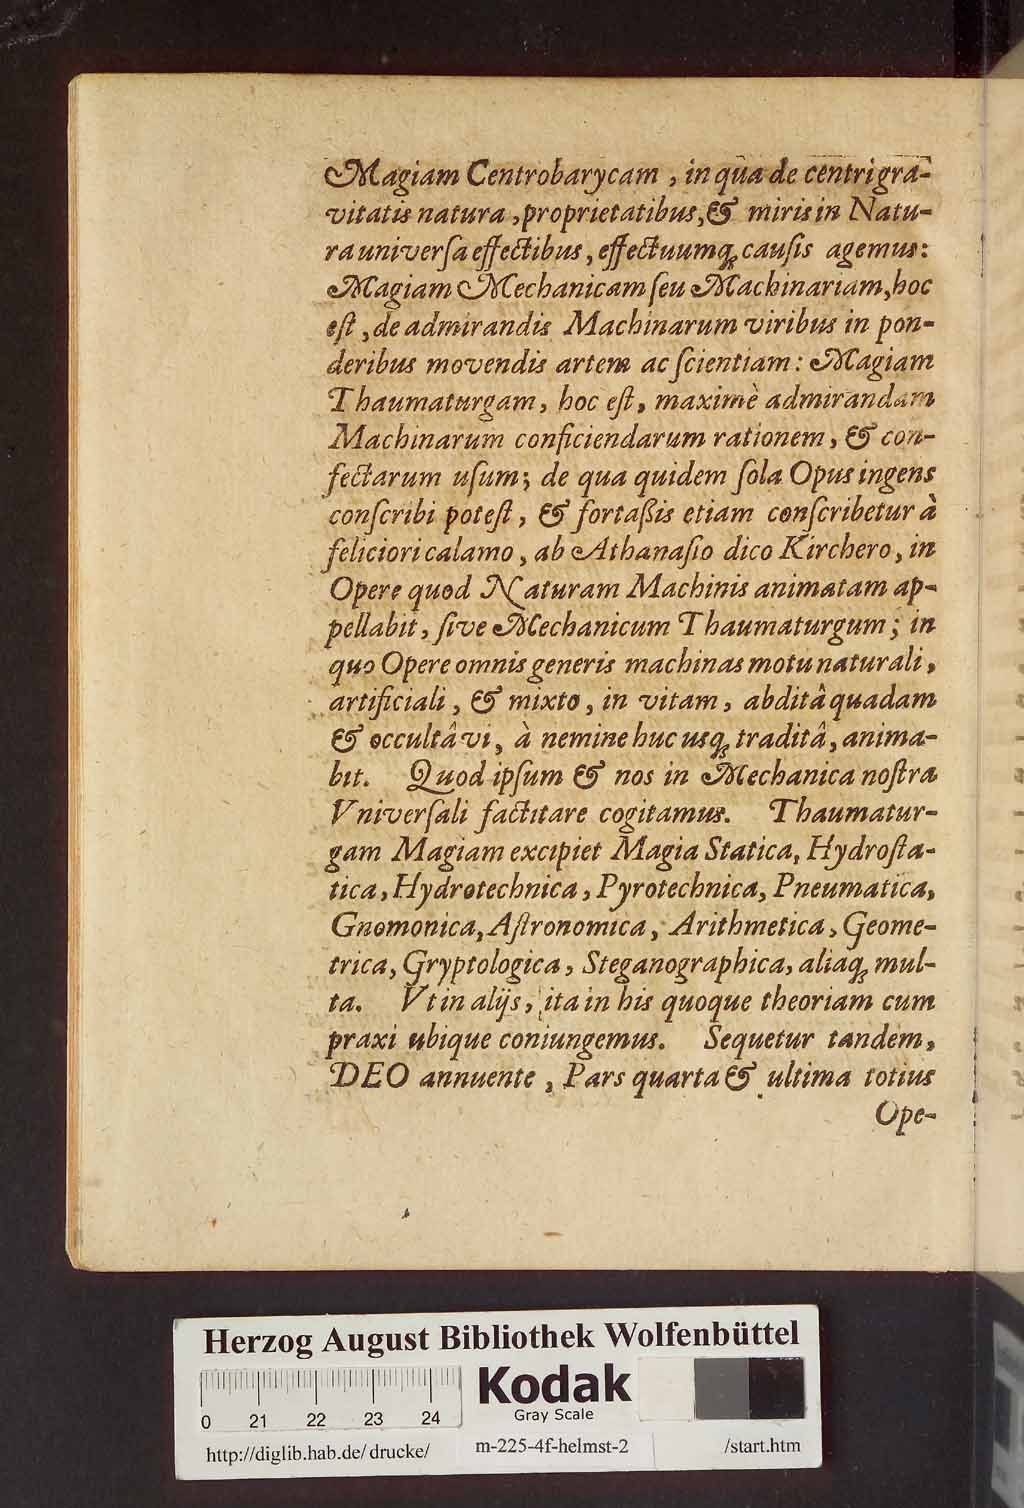 Magiam Centrobarycam, in quâ de centri gra-
vitatis natura, proprietatibus, & miris in Natu-
ra universa effectibus, effectuumq́; causis agemus:
Magiam Mechanicam seu Machinariam, hoc
est, de admirandis Machinarum viribus in pon-
deribus movendis artem ac scientiam: Magiam
Thaumaturgam, hoc est, maximè admirandam
Machinarum conficiendarum rationem, & con-
fectarum usum; de qua quidem sola Opus ingens
conscribi potest, & fortaßis etiam conscribetur à
feliciori calamo, ab Athanasio dico Kirchero, in
Opere quod Naturam Machinis animatam ap-
pellabit, sive Mechanicum Thaumaturgum; in
quo Opere omnis generis machinas motu naturali,
artificiali, & mixto, in vitam, abditâ quadam
& occultâ vi, à nemine huc usq́; traditâ, anima-
bit. Quod ipsum & nos in Mechanica nostra
Vniversali factitare cogitamus. Thaumatur-
gam Magiam excipiet Magia Statica, Hydrosta-
tica, Hydrotechnica, Pyrotechnica, Pneumatica,
Gnomonica, Astronomica, Arithmetica, Geome-
trica, Gryptologica, Steganographica, aliaq́; mul-
ta. Vt in alijs, ita in his quoque theoriam cum
praxi ubique coniungemus. Sequetur tandem,
DEO annuente, Pars quarta & ultima totius
Ope-
Herzog August Bibliothek Wolfenbüttel
0 21 22 23 24
Kodak
Gray Scale
http://diglib.hab.de/drucke/ m-225-4f-helmst-2 /start.htm